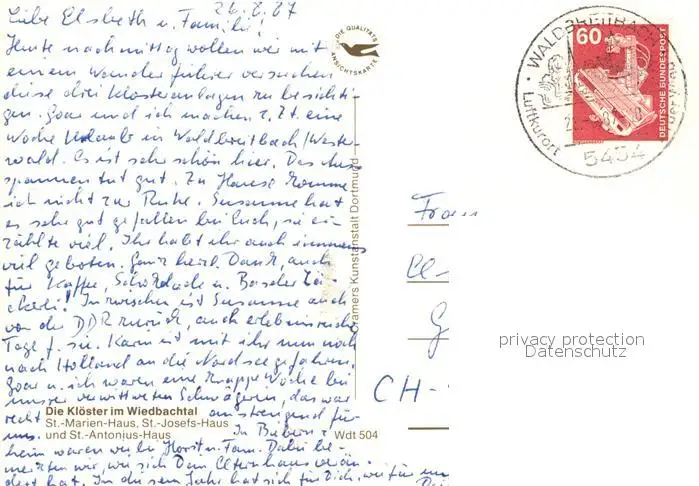 26.8.87
Liebe Elsbeth u. Familie!
Heute nachmittag wollen wir mit
einem Wanderführer versuchen
diese drei Klosteranlagen zu besichti-
gen. und ich machen z. Zt. eine
Woche Urlaub in Waldbreitbach/Wester-
wald. Es ist sehr schön hier. Das Aus-
spannen tut gut. Zu Hause komme
ich nicht zur Ruhe. Susanne hat
es sehr gut gefallen bei Euch, sie er-
zählte viel. Ihr habt ihr auch immens
viel geboten. Ganz herzl. Dank, auch
für Kaffee, Schokolade u. Basler Lä
ckerli! Inzwischen ist Susanne auch
von der DDR zurück, auch erlebnisreiche
Tage f. sie. Karin ist mit ihr nun noch
nach Holland an die Nordsee gefahren.
u. ich waren eine knappe Woche bei
unserer verwitweten Schwägerin, das war
recht anstrengend für
uns. In Bibern
heim waren wir bei Horst u. Fam. Dabei be-
wir, wo sich Dein Elternhaus verän-
dert hat. In diesem Jahr hat sich für Dich, wie für
Die Klöster im Wiedbachtal
St.-Marien-Haus, St.-Josefs-Haus
und St.-Antonius-Haus
Wdt 504
DIE QUALITÄTS
ANSICHTSKARTE
Cramers Kunstanstalt Dortmund
60
DEUTSCHE BUNDESPOST
WALDBREITBACH
Luftkurort
5454
Frau
CH-
privacy protection
Datenschutz